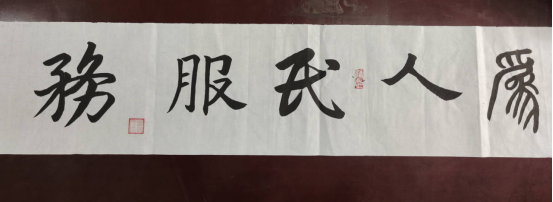 爲人民服務